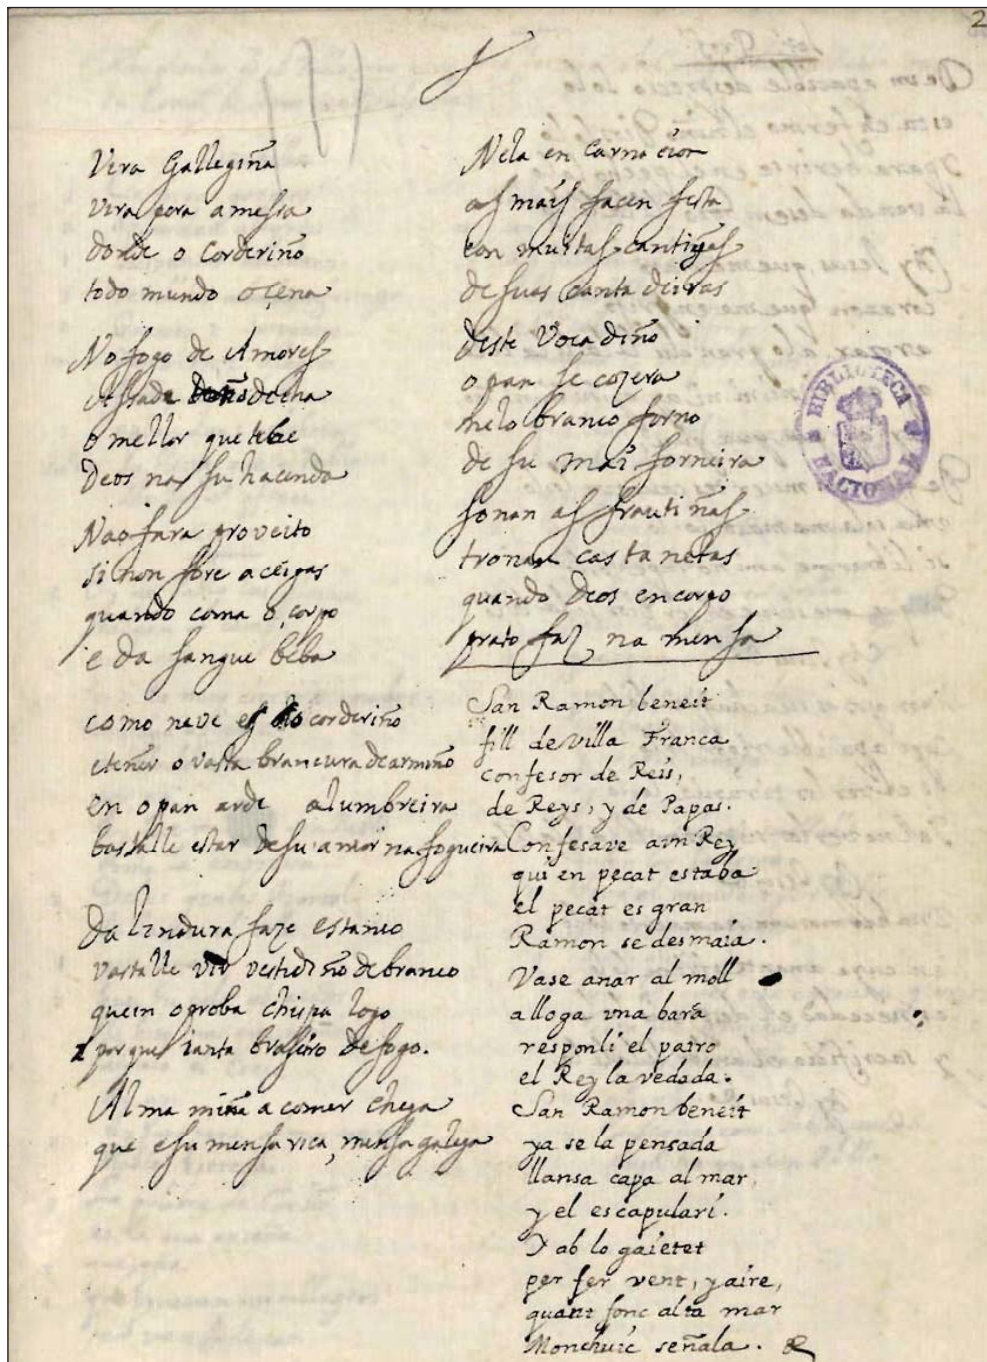 2
Vira Gallegiña
vira pora a messa
donde o corderiño
todo mundo oçena
No fogo de Amores
Assade deena
o mellor que tebe
Deos na su hacenda
Nao fara proveito
si non fore a ceigas
quando coma o corpo
e da sangue beba
como neve es o corderiño
eteñer o vasta brancura de armiño
en o pan arde alumbreira
bastalle estar de su amor na fogueira
Da lindura faze estanco
vastalle vir vestidiño de branco
quein o proba chispa logo
porque ianta braseiro de fogo.
Alma miña a comer chega
que e su mensa rica, mensa galega
Nela encarnacion
as mais facen festa
con muitas cantigas
de suas cantadeiras
Deste Vocadiño
o pan se cozera
nelo branco forno
de su mai forneira
sonan as frautiñas
tronan castanetas
quando Deos en corpo
prato faz na mensa
San Ramon beneit
fill de villa Franca
confesor de Reis,
de Reys, y de Papas.
Confesave a vn Rey
qui en pecat estaba
el pecat es gran
Ramon se desmaia.
Vase anar al moll
alloga vna bara
respon li el patro
el Rey la vedada.
San Ramon beneit
ya se la pensada
llansa capa al mar,
y el escapulari.
Y ab lo gaietet
per fer vent, y aire,
quant fonc alta mar
Monchuic señala.
BIBLIOTECA NACIONAL